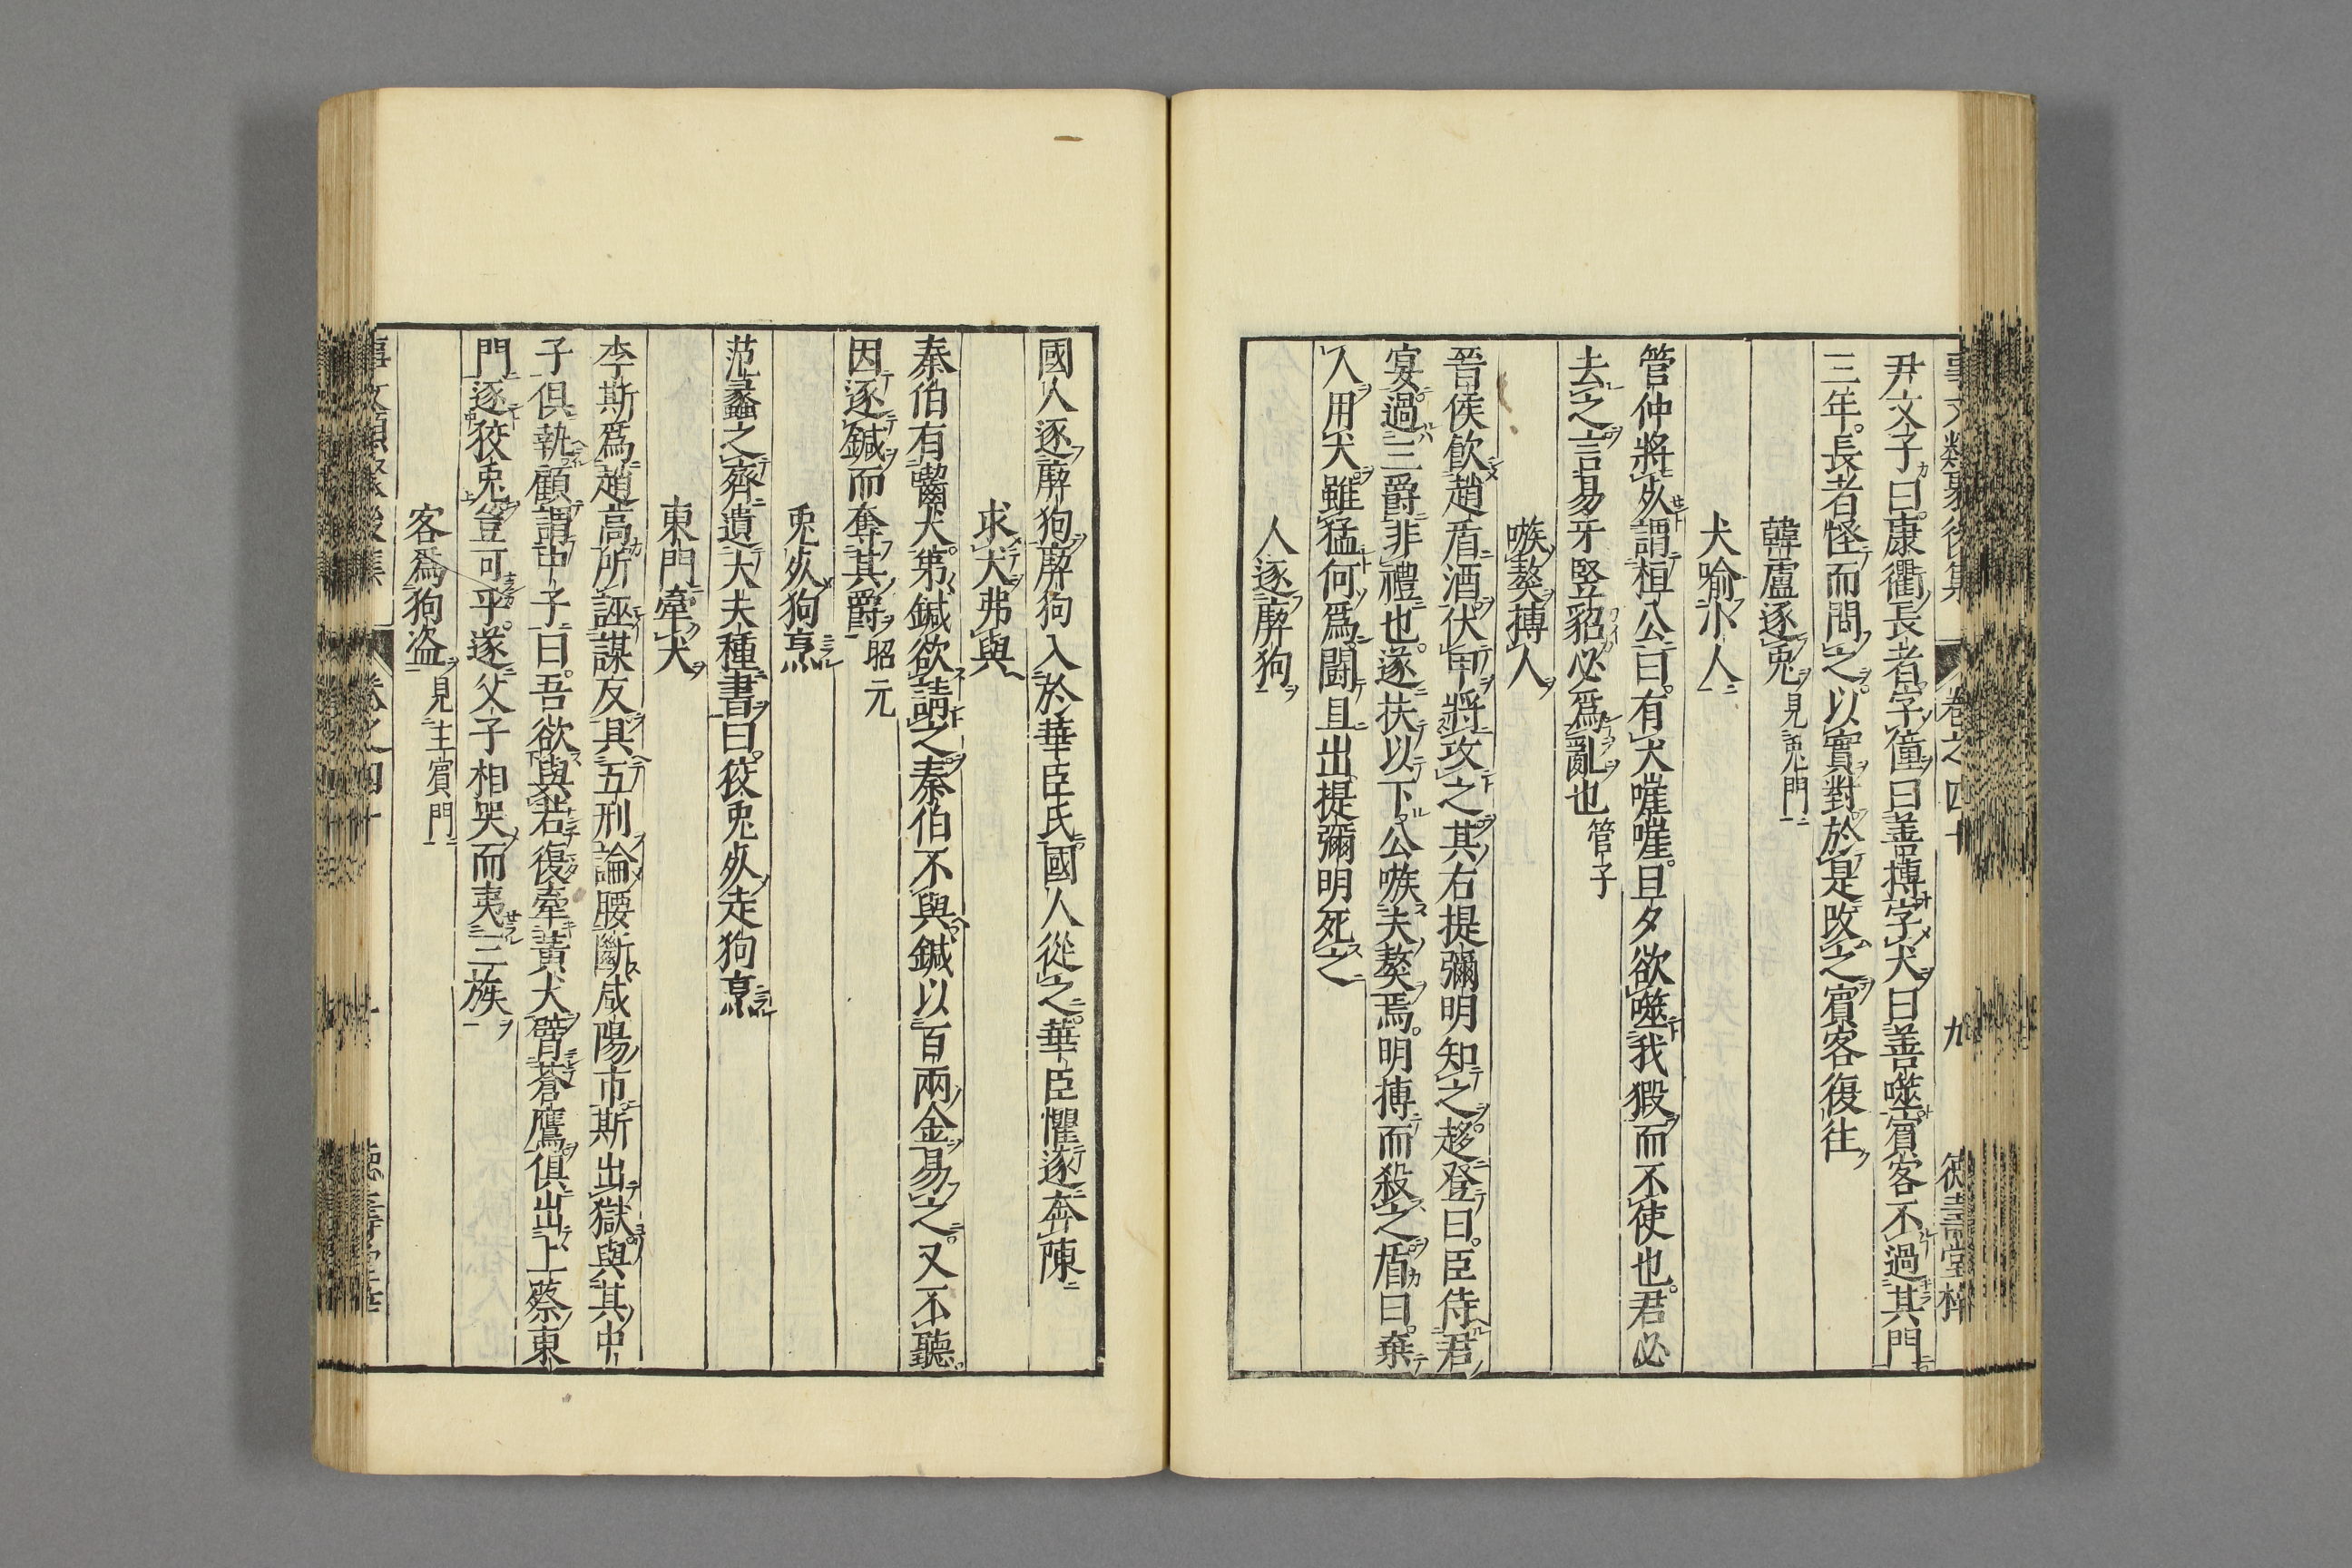 事文類聚後集 卷之四十 九 德壽堂梓
尹文子曰康衢長者字僮曰善搏字犬曰善噬賓客不過其門
三年長者怪而問之以實對於是改之賓客復往
韓盧逐兎見兎門
犬喻小人
管仲將死謂桓公曰有犬嘊嘊旦夕欲噬我猳而不使也君必
去之言易牙豎貂必爲亂也管子
嗾獒搏人
晉侯飮趙盾酒伏甲將攻之其右提彌明知之趍登曰臣侍君
宴過三爵非禮也遂扶以下公嗾夫獒焉明搏而殺之盾曰棄
人用犬雖猛何爲鬪且出提彌明死之
人逐瘈狗
國人逐瘈狗瘈狗入於華臣氏國人從之華臣懼遂奔陳
求犬弗與
秦伯有齧犬弟鍼欲請之秦伯不與鍼以百兩金易之又不聽
因逐鍼而奪其爵昭元
兎死狗烹
范蠡之齊遺大夫種書曰狡兎死走狗烹
東門牽犬
李斯爲趙高所誣謀反具五刑論腰斷咸陽市斯出獄與其中
子俱執顧謂中子曰吾欲與若復牽黃犬臂蒼鷹俱出上蔡東
門逐狡兎豈可乎遂父子相哭而夷三族
客爲狗盜見主賓門